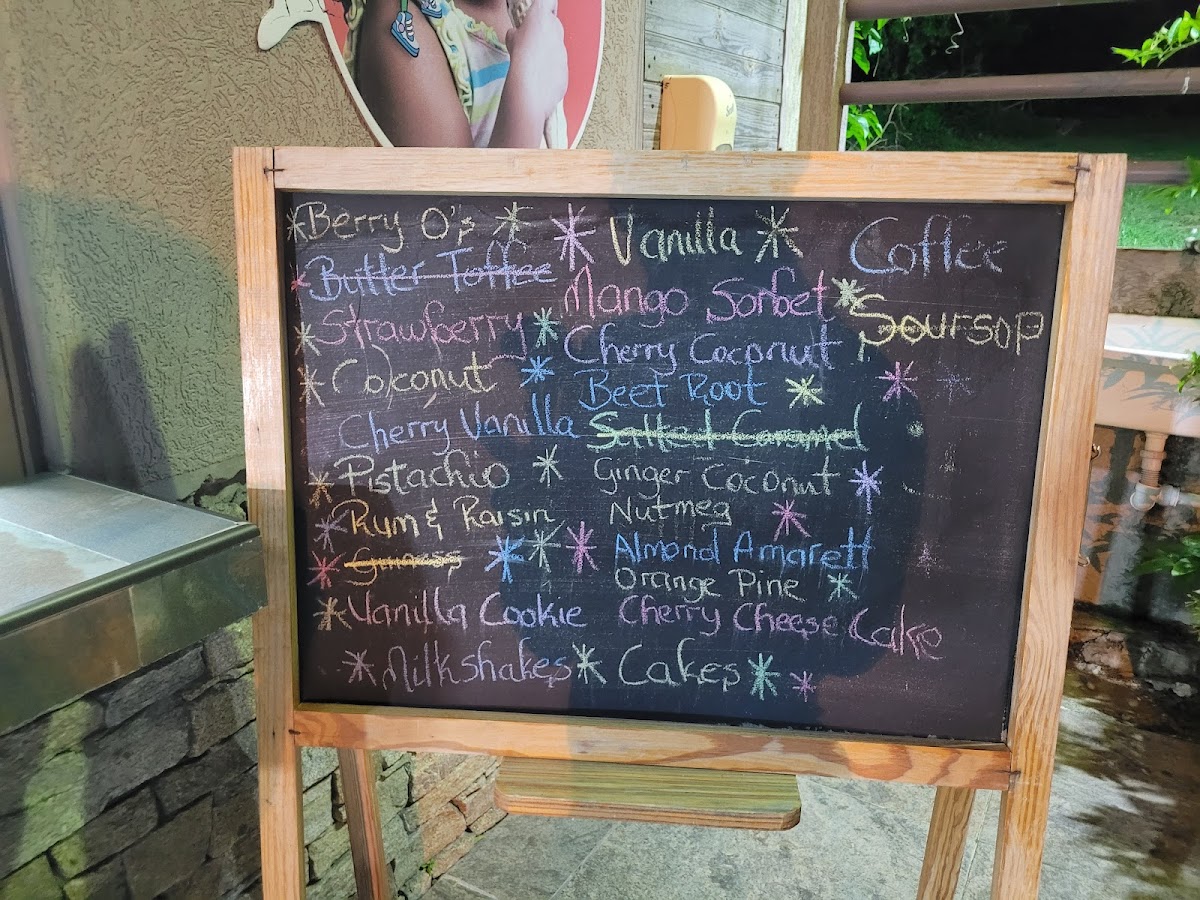 Berry O's
Vanilla
Coffee
Butter Toffee
Mango Sorbet
Soursop
Strawberry
Cherry Coconut
Coconut
Beet Root
Cherry Vanilla
Salted Caramel
Pistachio
Ginger Coconut
Rum & Raisin
Nutmeg
Guiness
Almond Amarett
Orange Pine
Vanilla Cookie
Cherry Cheese Cake
Milkshakes
Cakes